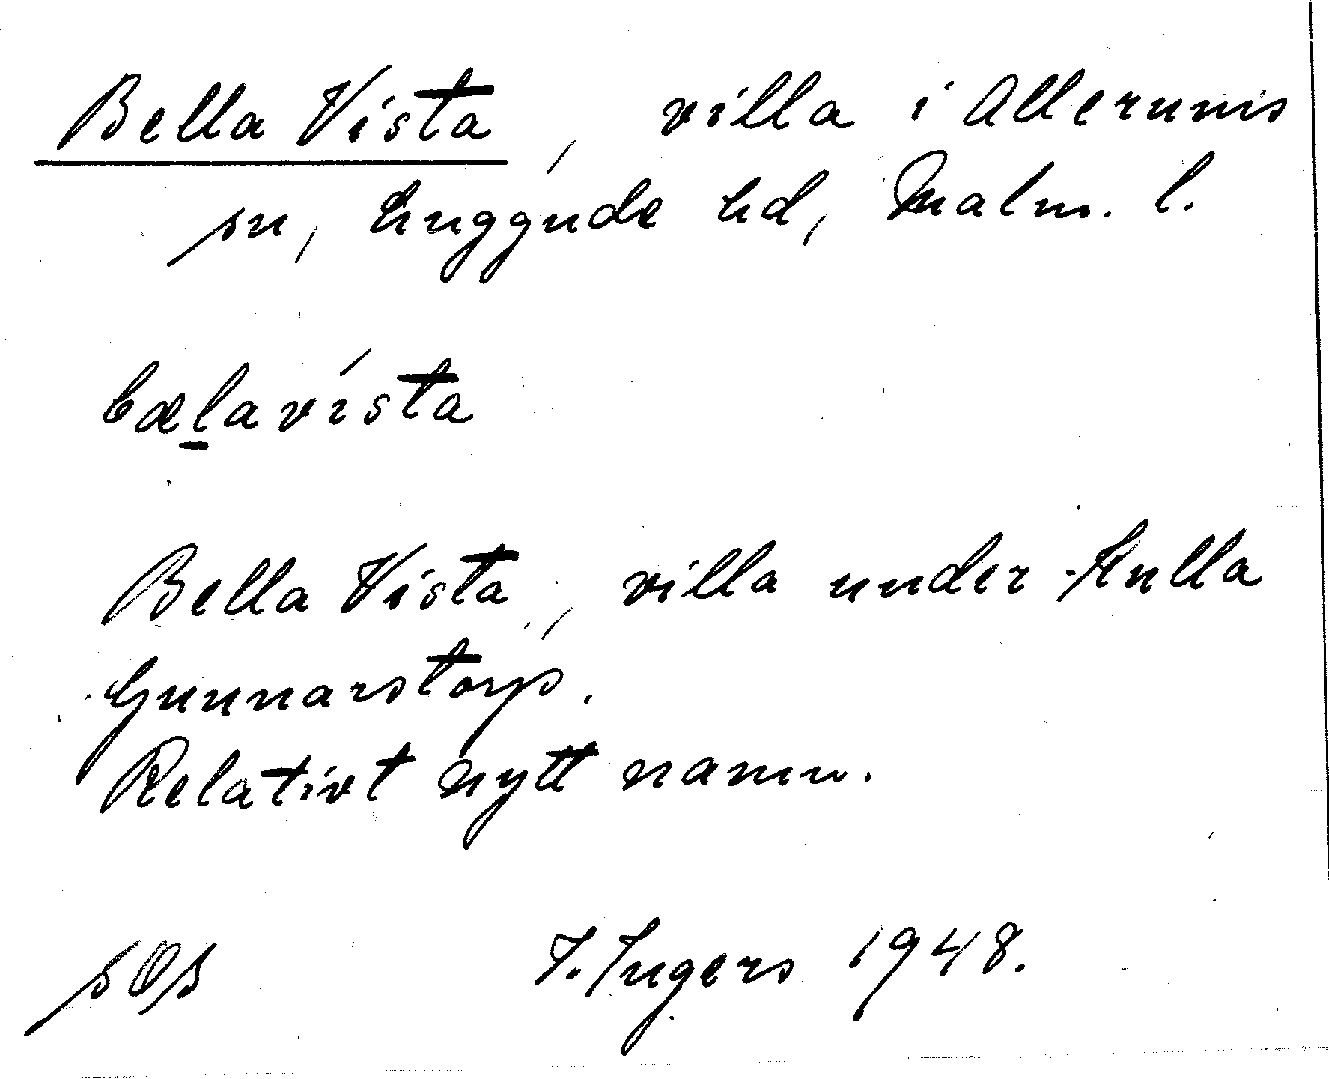 Bella Vista, villa i Allerums
sn, Luggude hd, Malm. l.
bælavísta
Bella Vista, villa under Kulla
Gunnarstorp.
Relativt nytt namn.
I. Ingers 1948.